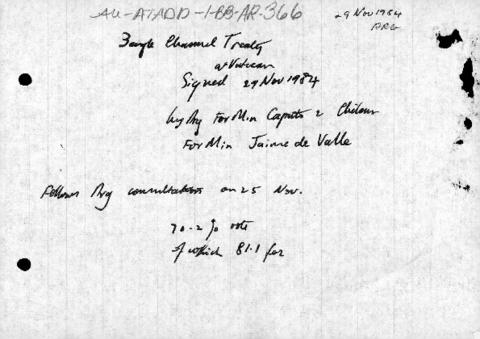 AU-ATADD-1-BB-AR-366
29 Nov 1984
ARG
Beagle Channel Treaty
at Vatican
Signed 29 Nov 1984
by Arg For Min Caputo & Chilean
For Min Jaime de Valle
Follows Arg consultations on 25 Nov.
70.2 % vote
of which 81.1 for